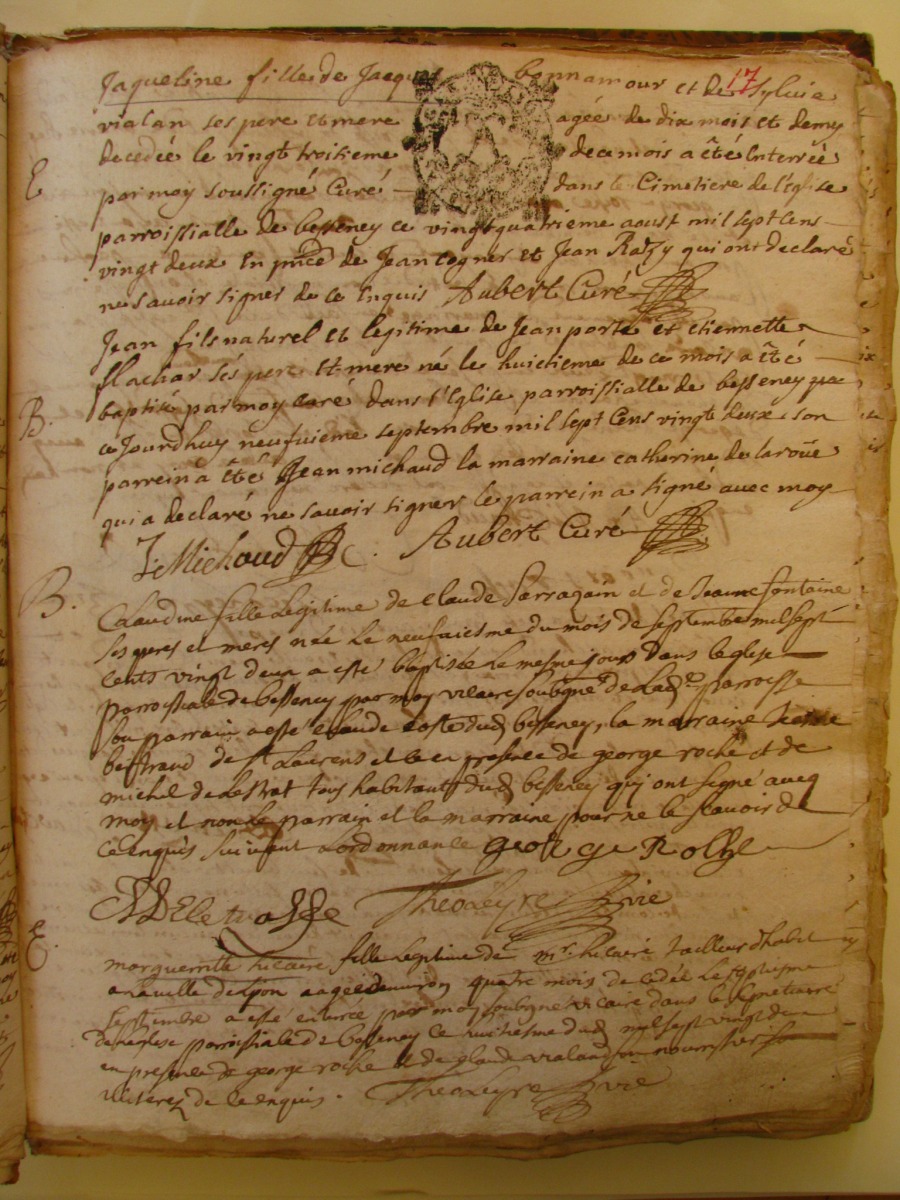 17
Jaqueline fille de Jacques bonnamour et de Sylvie
vialan ses pere et mere agée de dix mois et demy
decedée le vingt troisieme de ce mois a êté Enterrée
E
par moy soussigné Curé dans le Cimetiere de l'Eglise
parroissialle de besseney ce vingt quatrieme aoust mil sept cens
vingt deux En pnce de Jean cogner et Jean qui ont declaré
ne savoir signer de ce Enquis Aubert Curé
Jean fils naturel et legitime de Jean porte et etiennette
flachar ses pere et mere né le huictieme de ce mois a êté
B.
baptisé par moy curé dans l'Eglise parroissialle de besseney
ce Jourdhuy neufuieme septembre mil sept cens vingt deux son
parrein a êté Jean michaud la marraine catherine de laroüe
qui a declaré ne savoir signer le parrein a signé avec moy
J. Michaud Aubert Curé
B.
Claudine fille legitime de claude Sarragain et de Jeanne fontaine
ses peres et meres née le neufuiesme du mois de septembre mil sept
cents vingt deux a esté baptisée le mesme jour dans leglise
parroissiale de besseney par moy vicaire soubsigné de lade parroisse
son parrain a esté claude coste dud besseney, la marraine Jeanne
bertraud de st Laurens et ce en presence de george roche et de
michel delestrat tous habitants dud besseney qui ont signé aueq
moy et non le parrain et la marraine pour ne le scauoir de
ce enquis suiuant Lordonnance george Roche
E.
Theoleyre vic
margueritte hilaire fille legitime de mr. hilaire tailleur dhabit
a la uille de Lyon aagée denuiron quatre mois decedée le septiesme
septembre a esté enterrée par moy soubsigné vicaire dans le semetiere
de leglise parroissiale de besseney ce huictiesme dud mil sept vingt deux
en presence de george roche et de glaude vialand son nourrissier
illiterez de ce enquis. Theoleyre vic